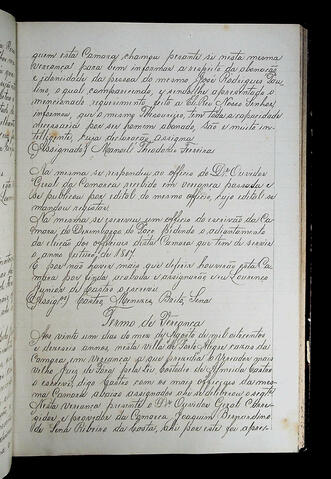 quem esta Camara chamou perante si nesta mesma
vereança para bem informar a respeito da abonação
e idenidade da pessoa do mesmo José Rodrigues Pau
lino, o qual comparecendo, e sendo lhe apresentado o
mencionado requerimento feito a El Rei Nosso Senhor
informou, que o mesmo Thesoureiro, tem toda a capacidade
necessaria por ser homem abonado, são e muito in-
teligente, cuja declaração assigna
(Assignado) Manoel Theodosio Ferreira
Na mesma se respondeu ao officio do Dr. Ouvidor
Geral da Comarca recebido em vereança passada e
se publicou por edital do mesmo officio, cujo edital se
mandou registar
Na mesma se escreveu um officio do escrivão da Ca
mara do Desembargo do Paço pedindo o adiantamento
da eleição dos officiaes desta Camara que tem de servir
o anno futuro de 1817
E por não haver mais que deferir houverão esta Ca
mara por finda acabada e assignarão eu Lourenço
Junior de Castro o escrevi
(Assig.os) Castro, Menezes, Brito, Sena
Termo de Vereança
Aos vinte um dias do mez de Agosto de mil oitocentos
e dezeseis annos, nesta villa de Porto Alegre cazas da
Camara em vereança a que assistirão o Vereador mais
velho Juiz de Fora pela Lei Custodio de Almeida Castro
o escrevi, digo Castro com os mais officiaes da mes
ma Camara abaixo assignados ahi se deliberou o segte
Nesta vereança presente o Dr. Ouvidor Geral Corre-
gedor e provedor da Comarca Joaquim Bernardino
de Sena Ribeiro da Costa, ahi por este foi apre-